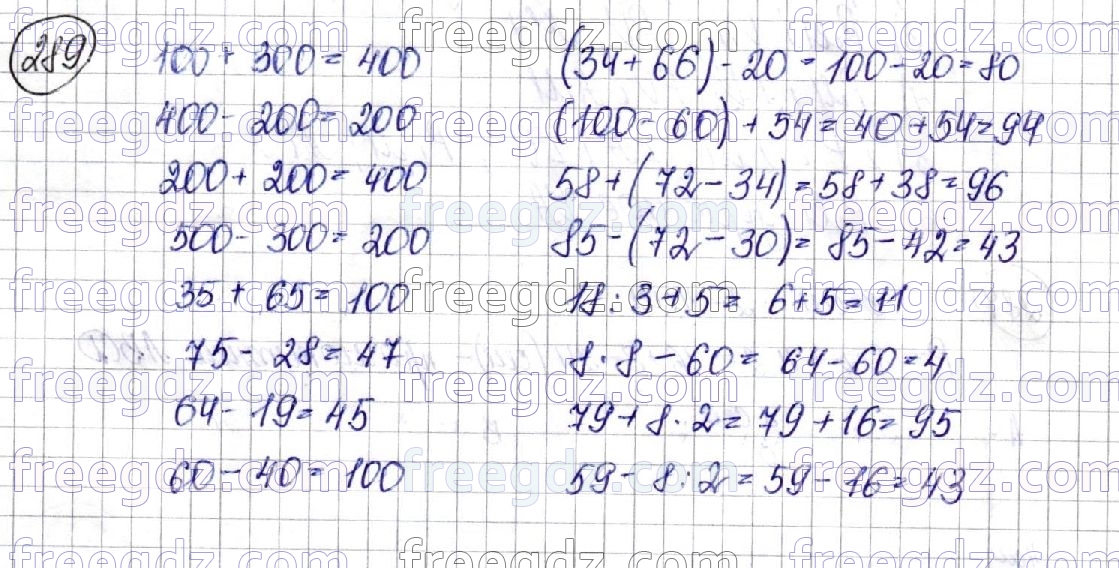 289
100 + 300 = 400
400 - 200 = 200
200 + 200 = 400
500 - 300 = 200
35 + 65 = 100
75 - 28 = 47
64 - 19 = 45
60 - 40 = 100
(34 + 66) - 20 = 100 - 20 = 80
(100 - 60) + 54 = 40 + 54 = 94
58 + (72 - 34) = 58 + 38 = 96
85 - (72 - 30) = 85 - 42 = 43
18 : 3 + 5 = 6 + 5 = 11
8 · 8 - 60 = 64 - 60 = 4
79 + 8 · 2 = 79 + 16 = 95
59 - 8 : 2 = 59 - 16 = 43
freegdz.com